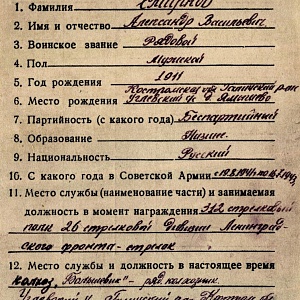 1. Фамилия Смирнов
2. Имя и отчество Александр Васильевич
3. Воинское звание Рядовой
4. Пол Мужской
5. Год рождения 1911
6. Место рождения Костромская
7. Партийность (с какого года) Беспартийный
8. Образование Низшее.
9. Национальность Русский
10. С какого года в Советской Армии с
11. Место службы (наименование части) и занимаемая
должность в момент награждения 312 стрелковый
полк 26 стрелковой Дивизии Ленинград-
ского фронта - стрелок
12. Место службы и должность в настоящее время
колхоз "Большевик" - ряд. колхозник.